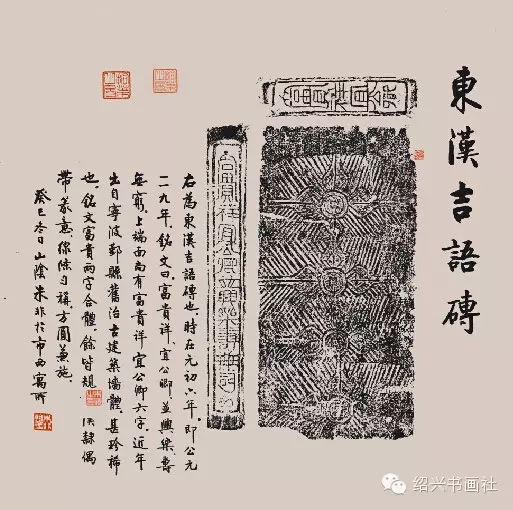 東漢吉語磚
富貴祥宜公卿
右為東漢吉語磚也，時在元初六年即公元
一一九年，銘文曰：富貴祥，宜公卿，並興樂，壽
無窮。上端面尚有富貴祥宜公卿六字，近年
出自寧波鄞縣舊治古建築墻體，甚珍稀
也。銘文富貴兩字合體，餘皆規
法隸偶
帶篆意，
方圓兼施
癸巳冬日山陰朱非於市西寓所
绍兴书画社